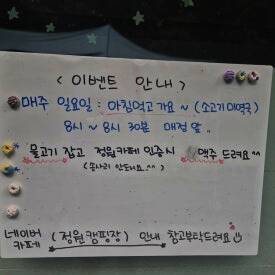 < 이벤트 안내 >
매주 일요일 : 아침먹고 가요 ~ (소고기 미역국)
8시 ~ 8시 30분 매점 앞.
물고기 잡고 정원카페 인증시 맥주 드려요 ^^
(송사리 안되네요.^^)
네이버 카페 (정원 캠핑장) 안내 참고부탁드려요